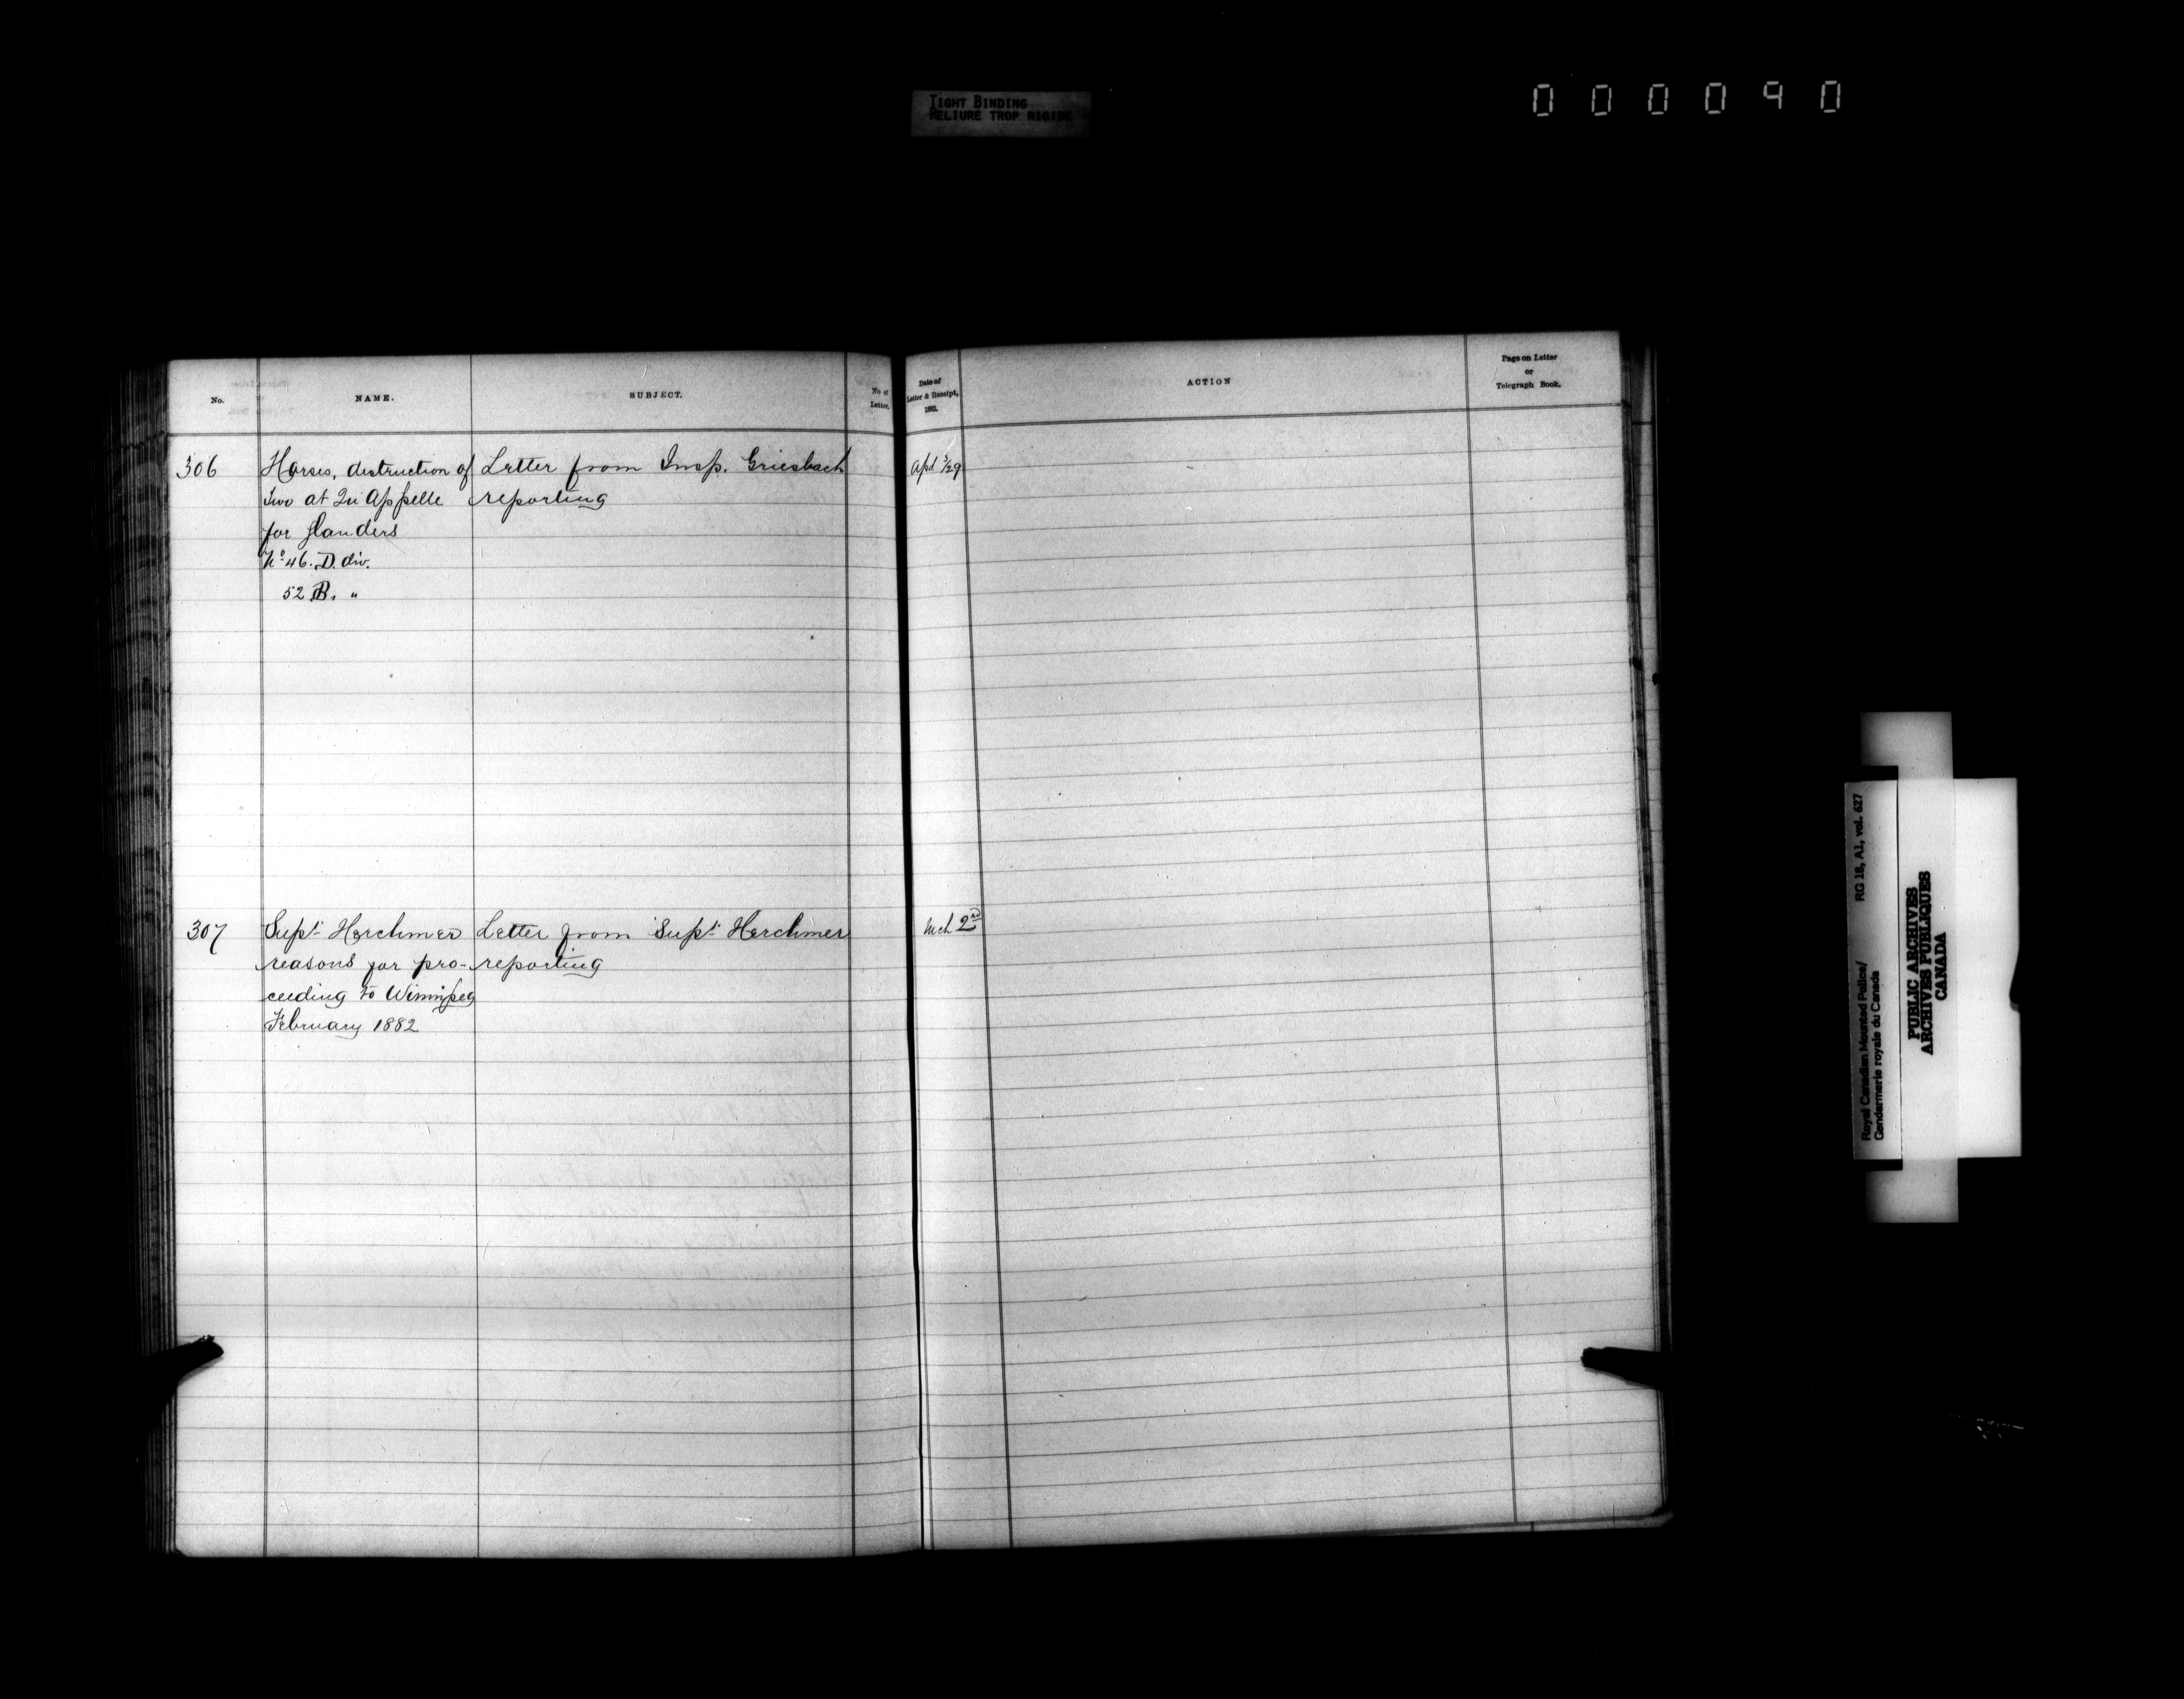 TIGHT BINDING
RELIURE TROP RIGIDE
000090
No.
NAME.
SUBJECT.
No of
Letter.
Date of
Letter & Receipt,
1882.
ACTION
Page on Letter
or
Telegraph Book.
306
Horses, destruction of
two at Qu Appelle
for glanders
No 46. D. div.
52 B. "
Letter from Insp. Griesbach
reporting
307
Supt. Herchmer
reasons for pro-
ceeding to Winnipeg
February 1882
Letter from Supt. Herchmer
reporting
Mch 2nd
Royal Canadian Mounted Police/
Gendarmerie royale du Canada
RG 18, A1, vol. 627
PUBLIC ARCHIVES
ARCHIVES PUBLIQUES
CANADA